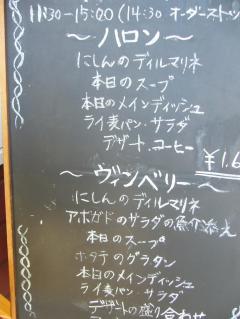 11:30-15:00 (14:30 オーダーストッ
～ハロン～
にしんのディルマリネ
本日のスープ
本日のメインディッシュ
ライ麦パン・サラダ
デザート.コーヒー
¥1.6
～ヴィンベリー～
にしんのディルマリネ
アボガドのサラダの魚介添え
本日のスープ
ホタテのグラタン
本日のメインディッシュ
ライ麦パン・サラダ
デザートの盛り合わせ